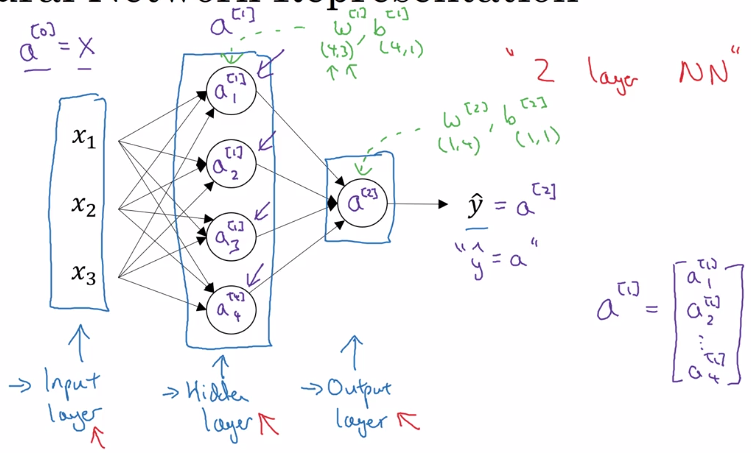 ural Network Representation
a^[0] = X
a^[1]
w^[1], b^[1]
(4,3) (4,1)
"2 layer NN"
x₁
x₂
x₃
a₁^[1]
a₂^[1]
a₃^[1]
a₄^[1]
w^[2], b^[2]
(1,4) (1,1)
a^[2]
ŷ = a^[2]
"ŷ = a"
a^[1] =
a₁^[1]
a₂^[1]
⋮
a₄^[1]
→ Input layer
→ Hidden layer
→ Output layer